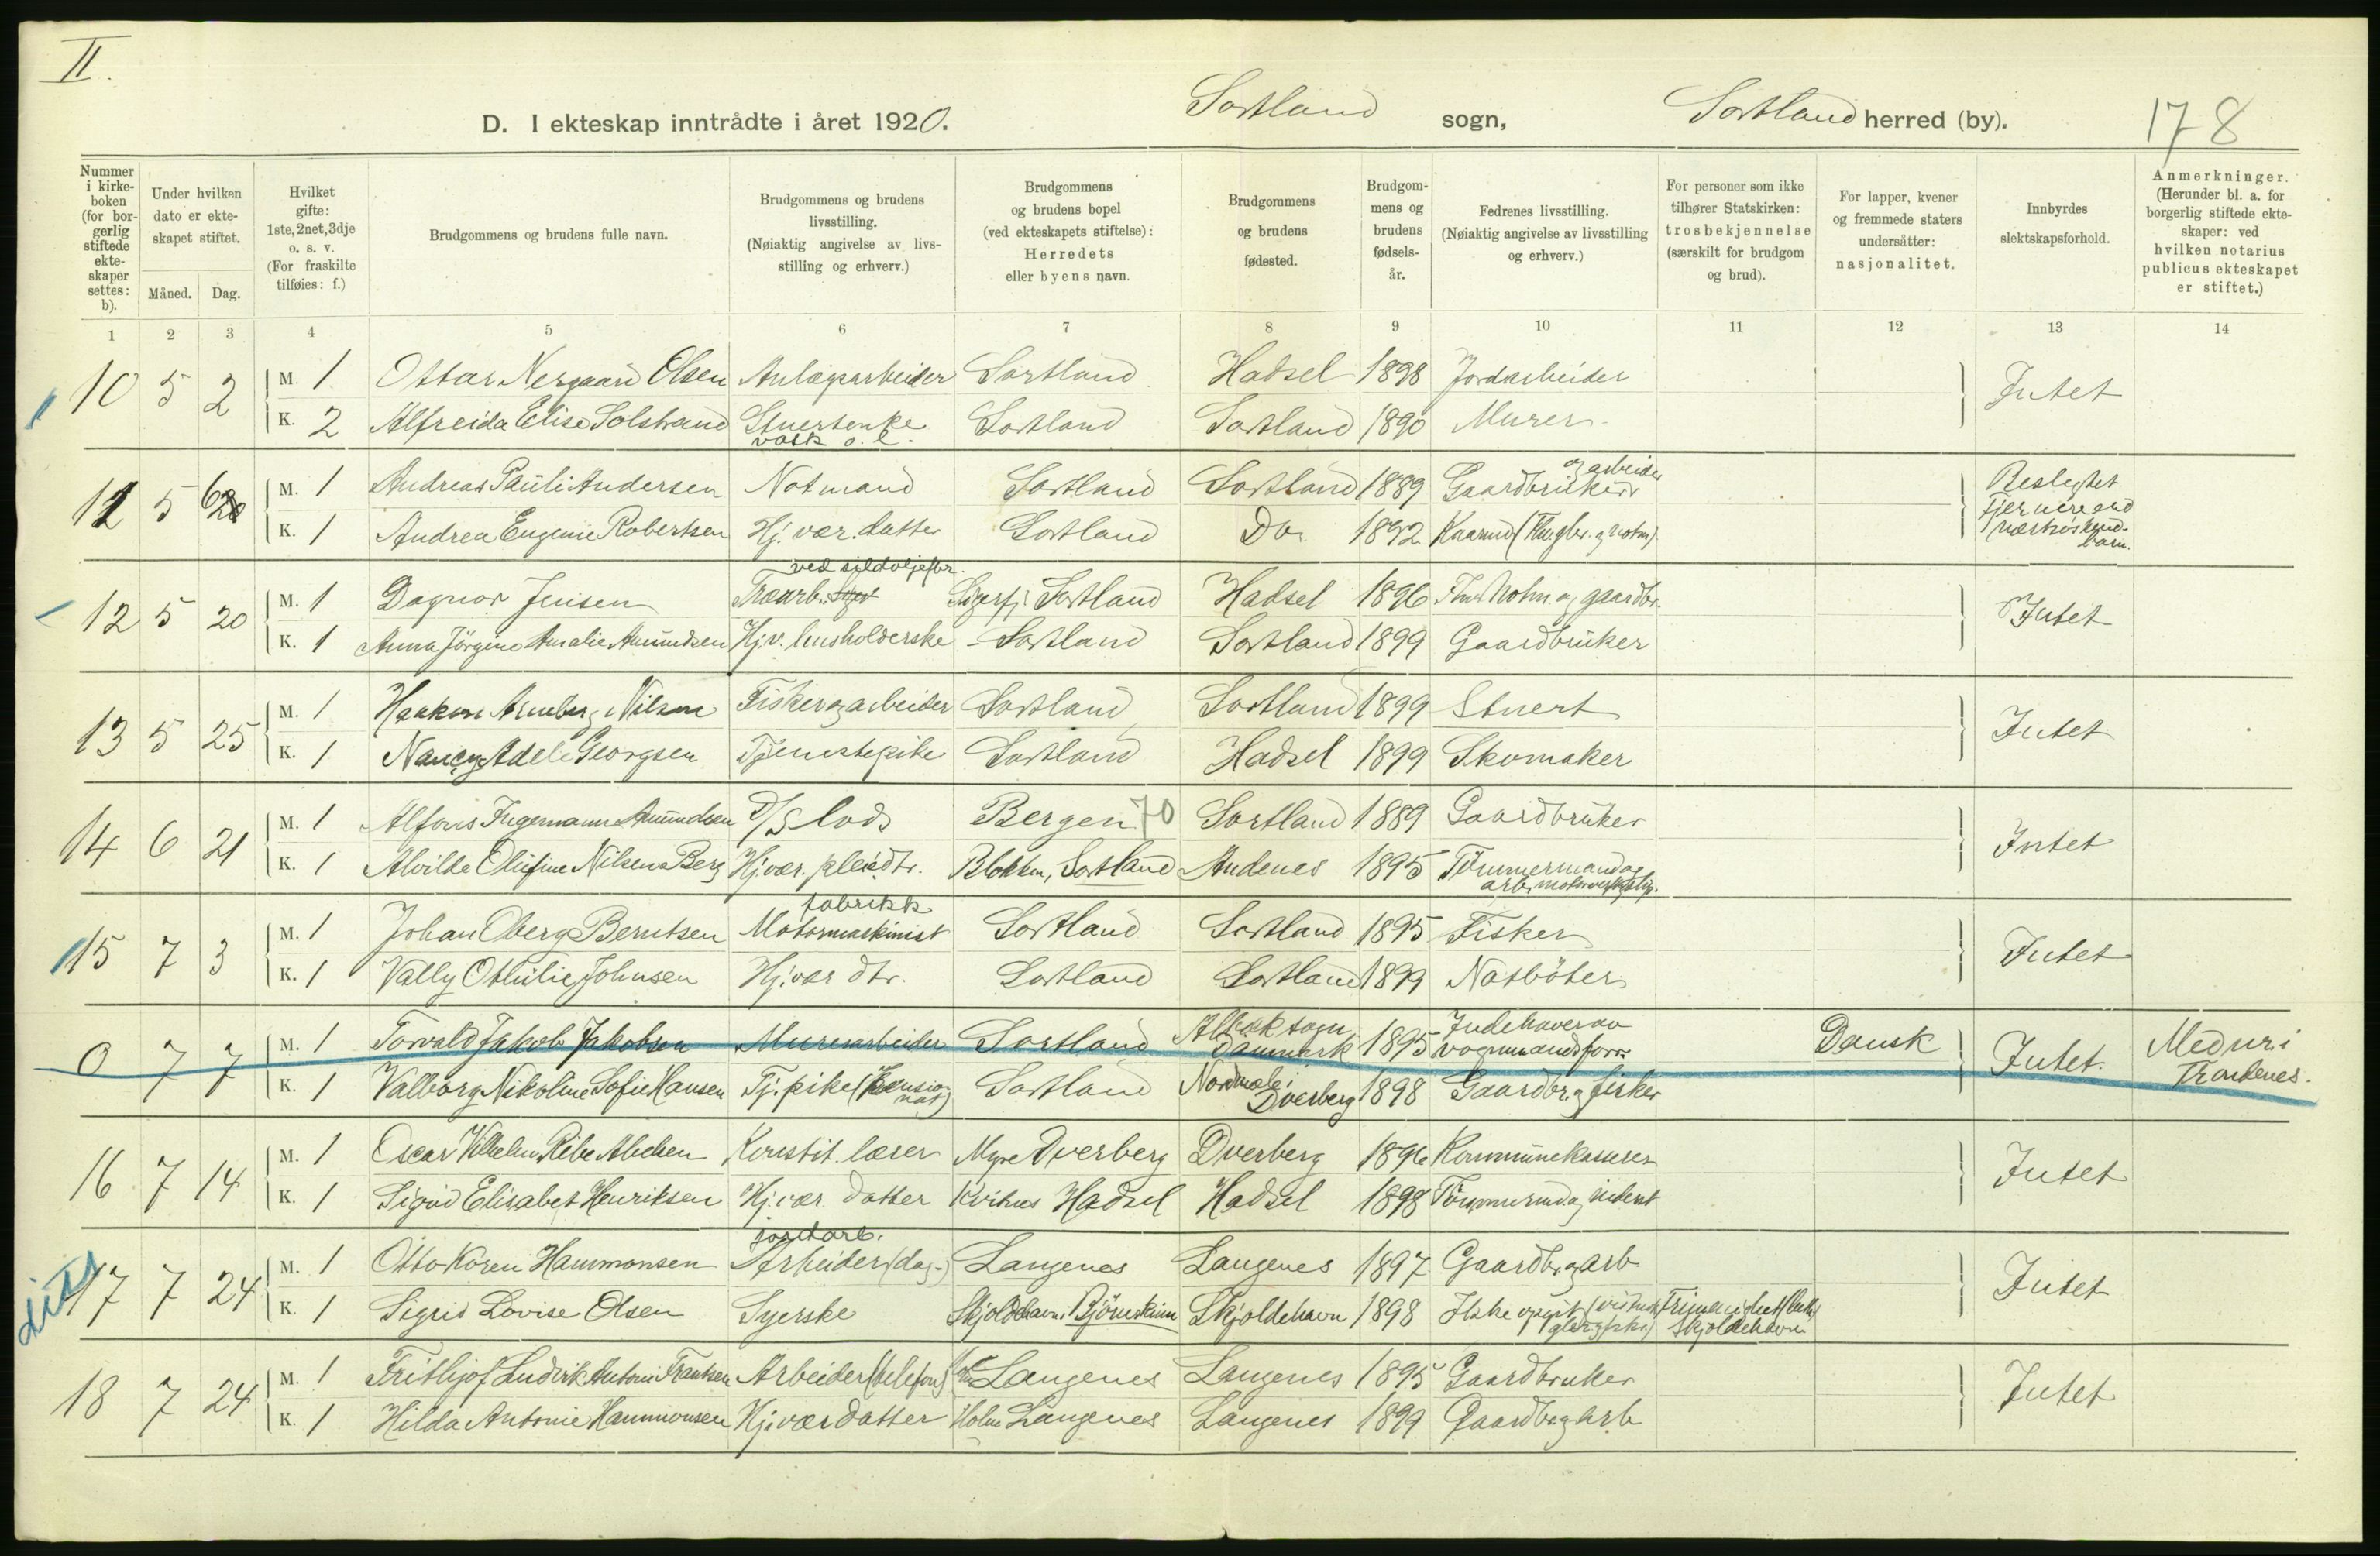 II.
D. I ekteskap inntrådte i året 1920.
Sortland sogn, Sortland herred (by). 178
Nummer i kirke-boken (for bor-gerlig stiftede ekte-skaper settes: b).
Under hvilken dato er ekte-skapet stiftet.
Måned. Dag.
Hvilket gifte: 1ste, 2net, 3dje o. s. v. (For fraskilte tilføies: f.)
Brudgommens og brudens fulle navn.
Brudgommens og brudens livsstilling. (Nøiaktig angivelse av livs-stilling og erhverv.)
Brudgommens og brudens bopel (ved ekteskapets stiftelse): Herredets eller byens navn.
Brudgommens og brudens fødested.
Brudgom-mens og brudens fødsels-år.
Fedrenes livsstilling. (Nøiaktig angivelse av livsstilling og erhverv.)
For personer som ikke tilhører Statskirken: trosbekjennelse (særskilt for brudgom og brud).
For lapper, kvener og fremmede staters undersåtter: nasjonalitet.
Innbyrdes slektskapsforhold.
Anmerkninger. (Herunder bl. a. for borgerlig stiftede ekte-skaper: ved hvilken notarius publicus ekteskapet er stiftet.)
1 2 3 4 5 6 7 8 9 10 11 12 13 14
10 5 2 M. 1 Ottar Nergaard Olsen Anlægsarbeider Sortland Hadsel 1898 Jordarbeider Intet
K. 2 Alfreida Elise Solstrand Stuertenke Sortland Sortland 1890 Murer
vask o. l.
og arbeider
11 5 6 M. 1 Andreas Pauli Andersen Notmand Sortland Sortland 1889 Gaardbruker Beslegtet
fjernere end
K. 1 Andrea Eugenie Robertsen Hj. vær. datter Sortland Do. 1892 næstsøskend-
barn.
ved sildoljefbr.
12 5 20 M. 1 Dagnor Jensen Træarb. Sigerfj. Sortland Hadsel 1896 Notm. og gaardbr. Intet
K. 1 Anna Jörgine Amalie Amundsen Hj.v. husholderske - Sortland Sortland 1899 Gaardbruker
13 5 25 M. 1 Haakon Nilsen Fisker og arbeider Sortland Sortland 1899 Stuert Intet
K. 1 Nancy Adele Georgsen Tjenestepike Sortland Hadsel 1899 Skomaker
14 6 21 M. 1 Alfons Ingemann Amundsen D/S lods Bergen 70 Sortland 1889 Gaardbruker Intet
K. 1 Alvilde Olufine Nilsen Berg Hj. vær. pleiedtr. Blokken, Sortland Andenes 1895 Tömmermand og
fabrikk
15 7 3 M. 1 Johan Oberg Berntsen Motormaskinist Sortland Sortland 1895 Fisker Intet
K. 1 Vally Othilie Johnsen Hj. vær dtr. Sortland Sortland 1899 Notböter
0 7 7 M. 1 Torvald Jakob Jakobsen Murerarbeider Sortland Albæk sogn Danmark 1895 Indehaver av vognmandsforr. Dansk Intet. Meduri Trondenes.
K. 1 Valborg Nikoline Sofie Hansen Tj. pike (Pensionat) Sortland Nordmela i Dverberg 1898 Gaardbr. og fisker
16 7 14 M. 1 Oscar Vilhelm Ribe Abelsen Konstit. lærer Myre Dverberg Dverberg 1896 Kommunekasserer Intet
K. 1 Sigrid Elisabet Henriksen Hj. vær. datter Kvitnes Hadsel Hadsel 1898
jordarb.
17 7 24 M. 1 Otto Koren Hammonsen Arbeider (dag-) Langenes Langenes 1897 Gaardbr. og arb. Intet
K. 1 Sigrid Lovise Olsen Syerske Skjoldehavn i Bjørnskinn Skjoldehavn 1898 Ikke opgit Skjoldehavn
18 7 24 M. 1 Frithjof Ludvik Antoni Frantsen Arbeider (telefon) Langenes Langenes 1895 Gaardbruker Intet
K. 1 Hilda Antonie Hammonsen Hj. vær datter Holm Langenes Langenes 1899 Gaardbr. og arb